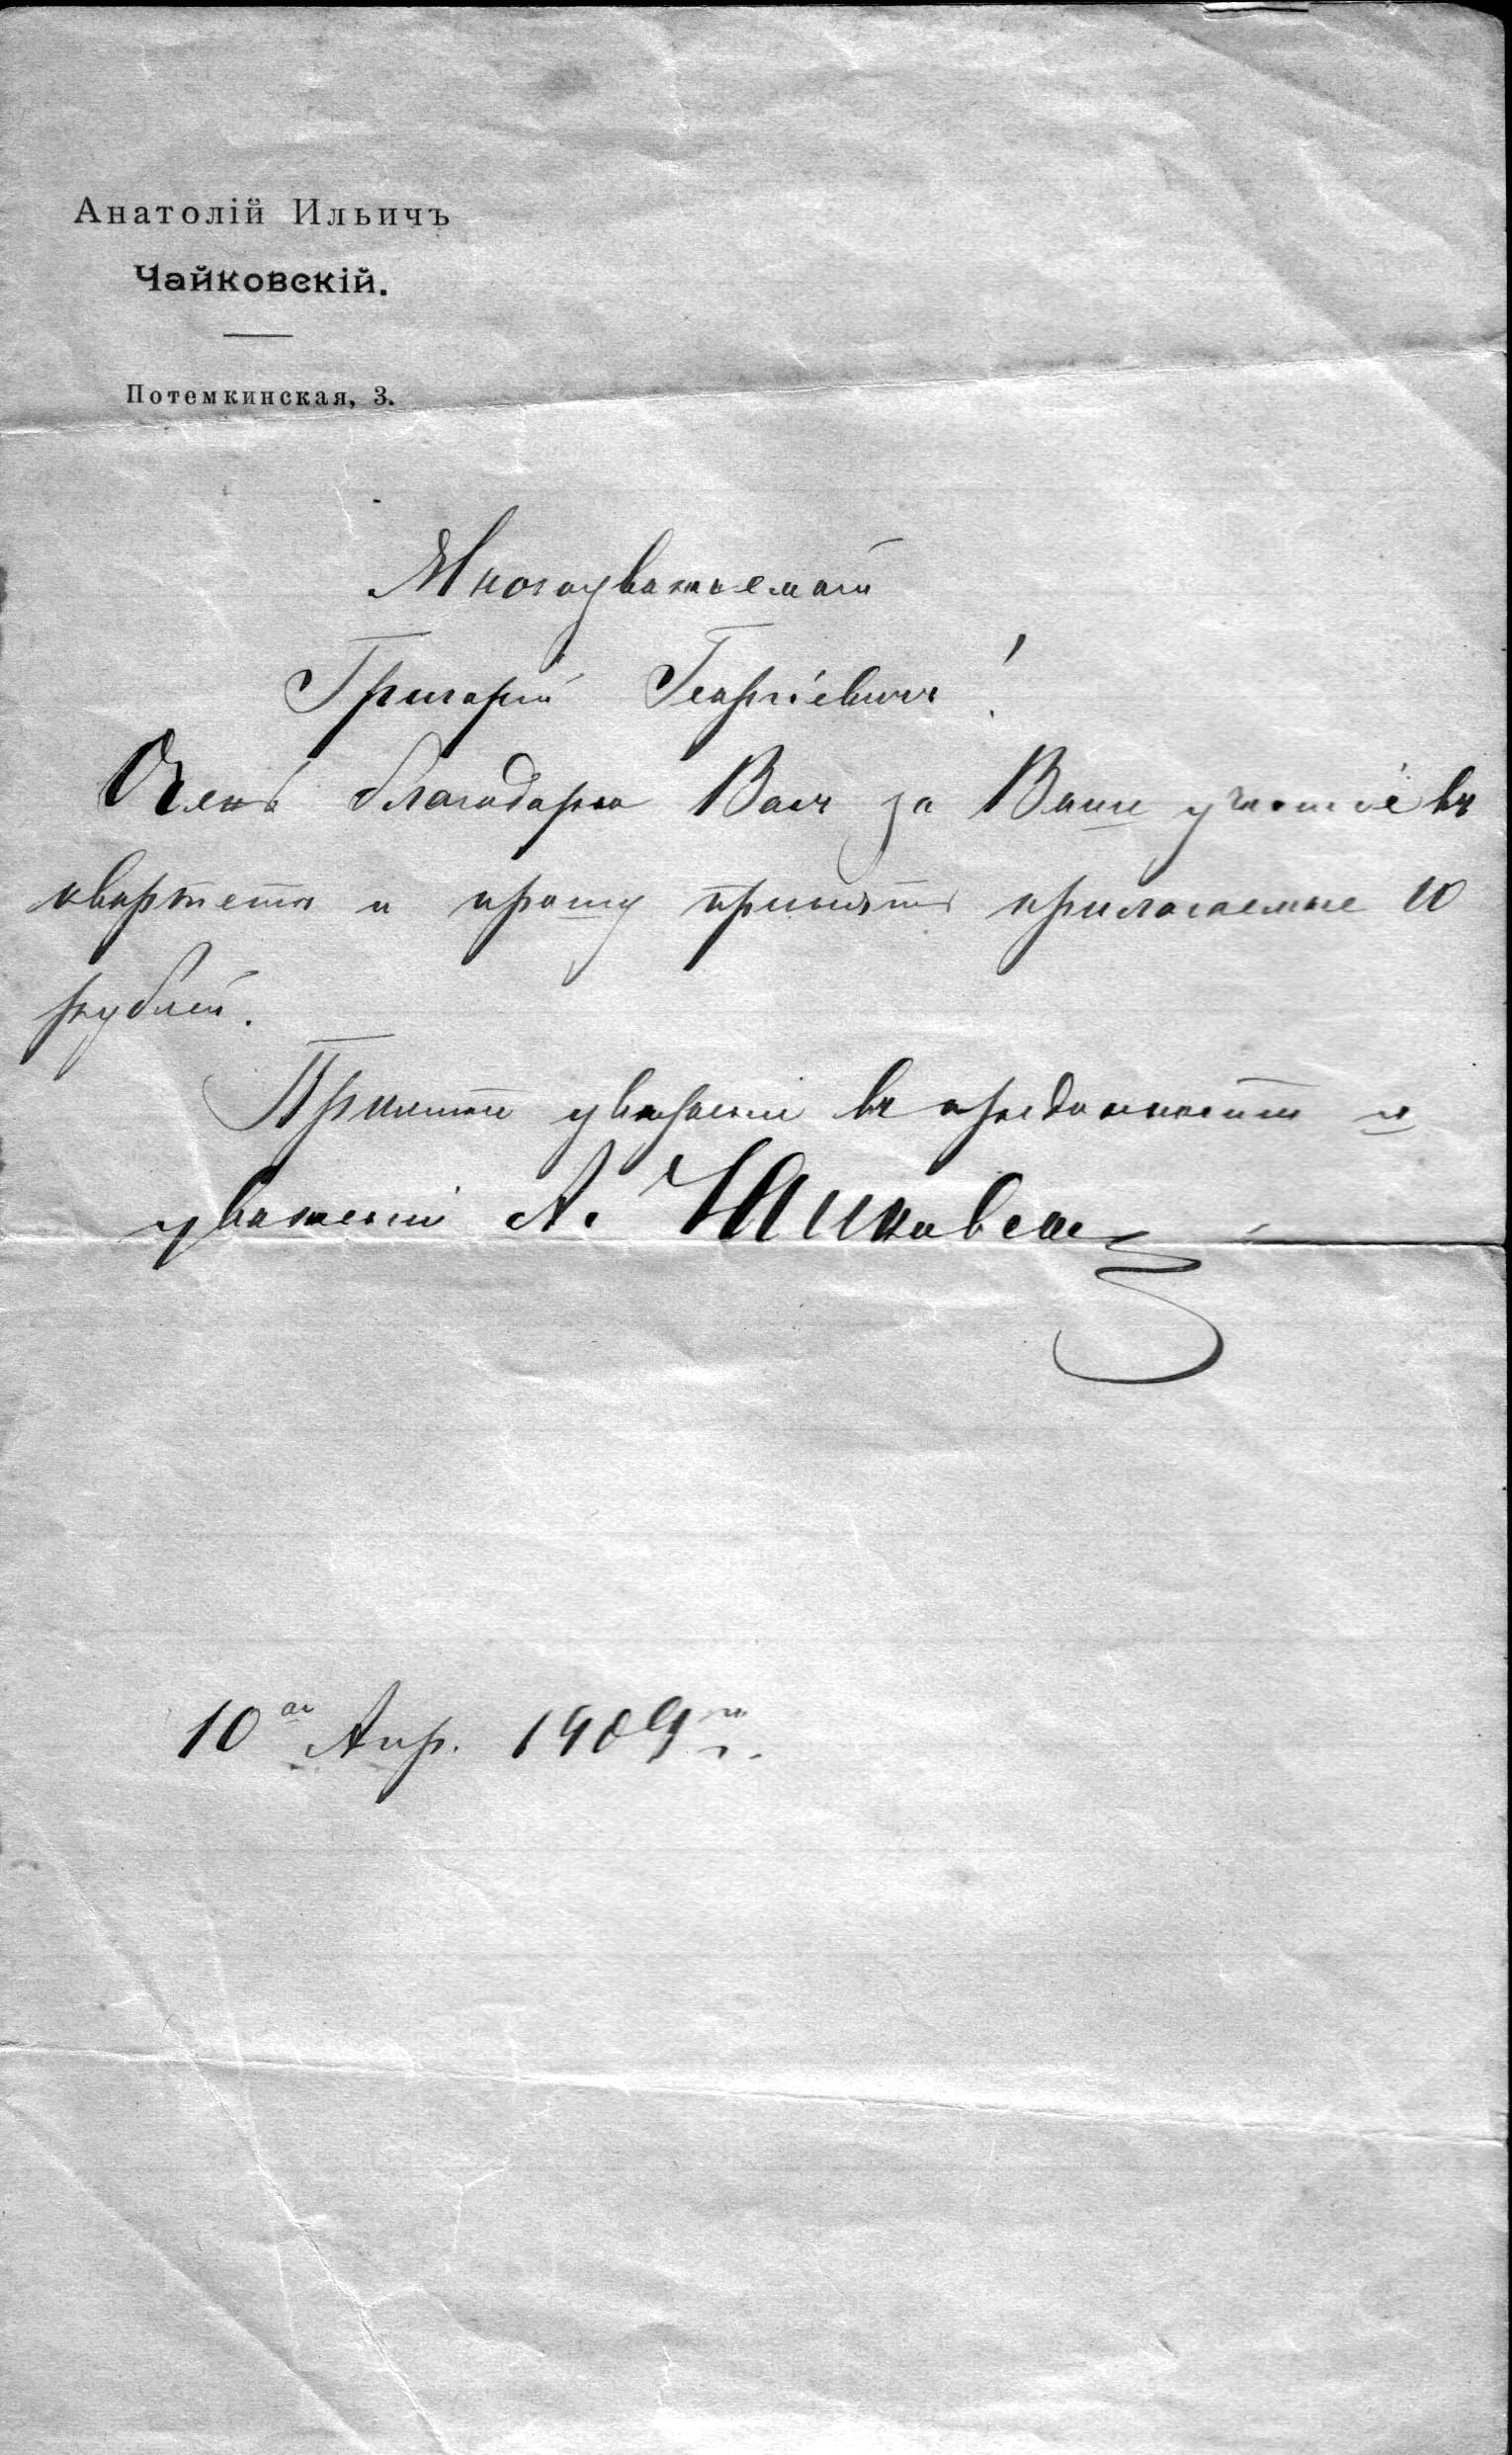 Анатолій Ильичъ
Чайковскій.
Потемкинская, 3.
Многоуважаемый
Григорій Георгіевичъ!
Очень благодарю Васъ за Ваше участіе въ
квартетѣ и прошу принять прилагаемые 10
рублей.
Примите увѣреніе въ преданности и
уваженіи А. Чайковскій
10го Апр. 1909 г.